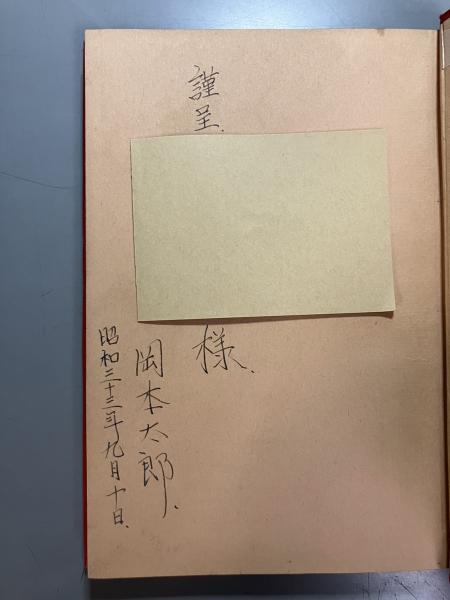 謹呈
様
岡本太郎
昭和三十三年九月十日